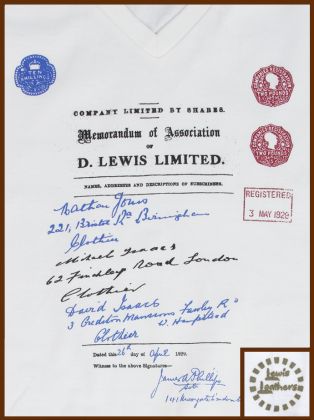 TEN
SHILLINGS
TWO POUNDS
TWO POUNDS
COMPANY LIMITED BY SHARES.
Memorandum of Association
OF
D. LEWIS LIMITED.
NAMES, ADDRESSES AND DESCRIPTIONS OF SUBSCRIBERS.
REGISTERED
3 MAY 1929
Nathan Jones
221, Bristol Rd Birmingham
Clothier
Michael Isaacs
62 Finchley Road London
Clothier
David Isaacs
3 Crediton Mansions Fawley Rd
W. Hampstead
Clothier
Dated this 26th day of April 1929.
Witness to the above Signatures—
James A Phillips
Lewis
Leathers